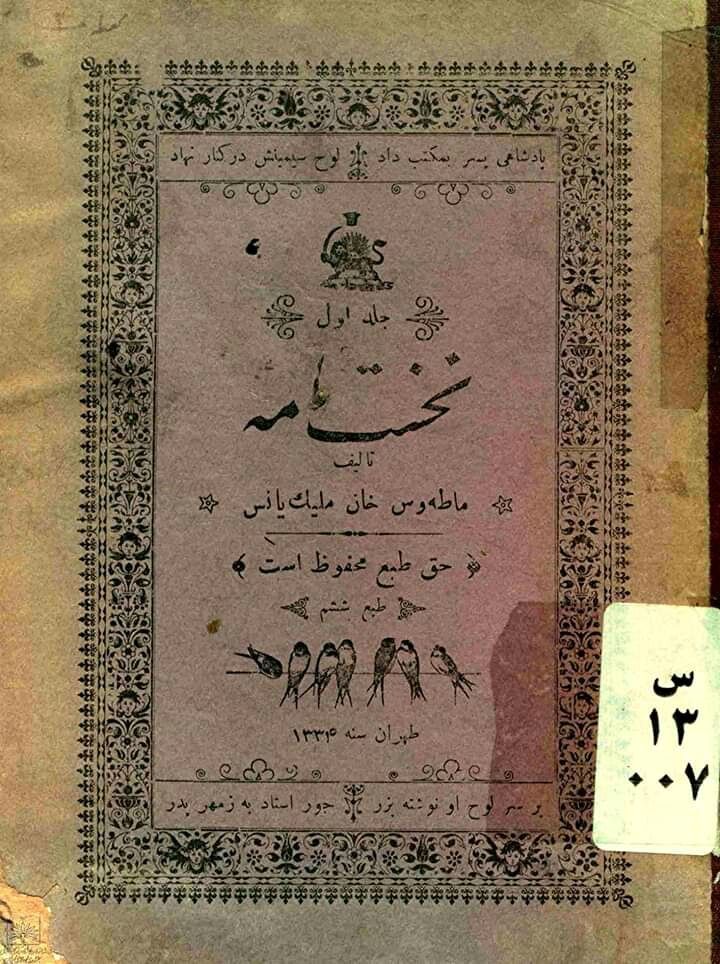 پادشاهی پسر بمکتب داد لوح سیمینش درکنار نهاد
جلد اول
نخستنامه
تالیف
ماطه‌وس خان ملیك‌یانس
حق طبع محفوظ است
طبع ششم
طهران سنه ۱۳۳۴
بر سر لوح او نوشته بزر جور استاد به زمهر پدر
س
۱۳
۰۰۷